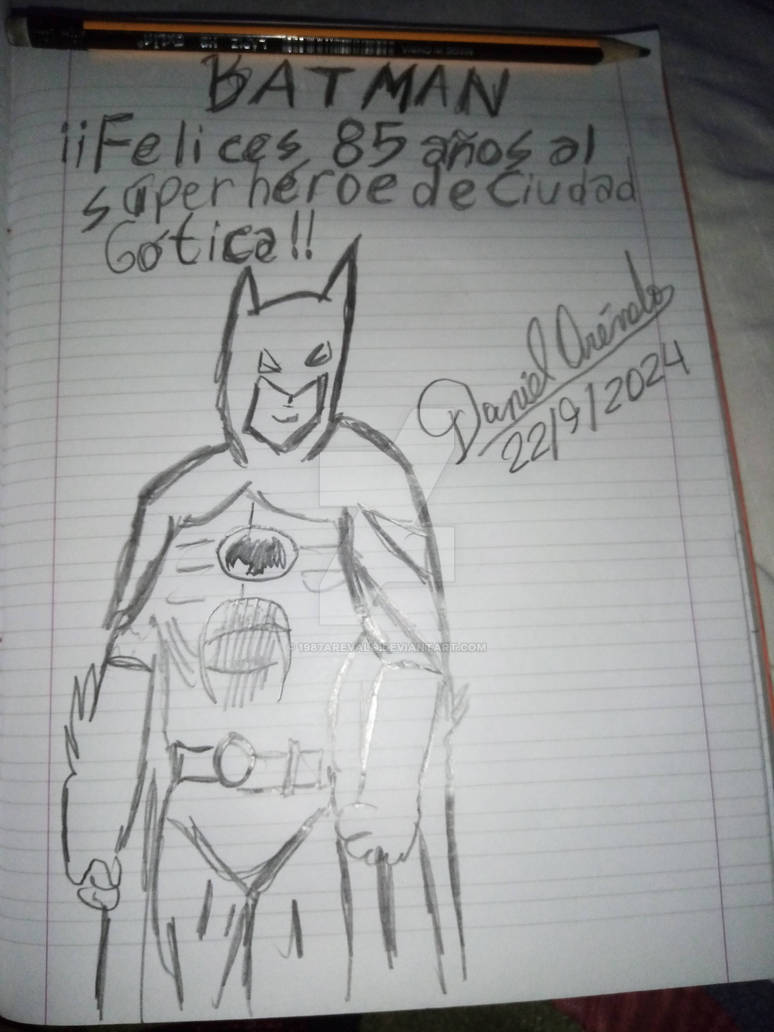 BATMAN
¡¡Felices 85 años al
súper héroe de Ciudad
Gótica!!
Daniel Arévalo
22/9/2024
© 1987AREVALO.DEVIANTART.COM